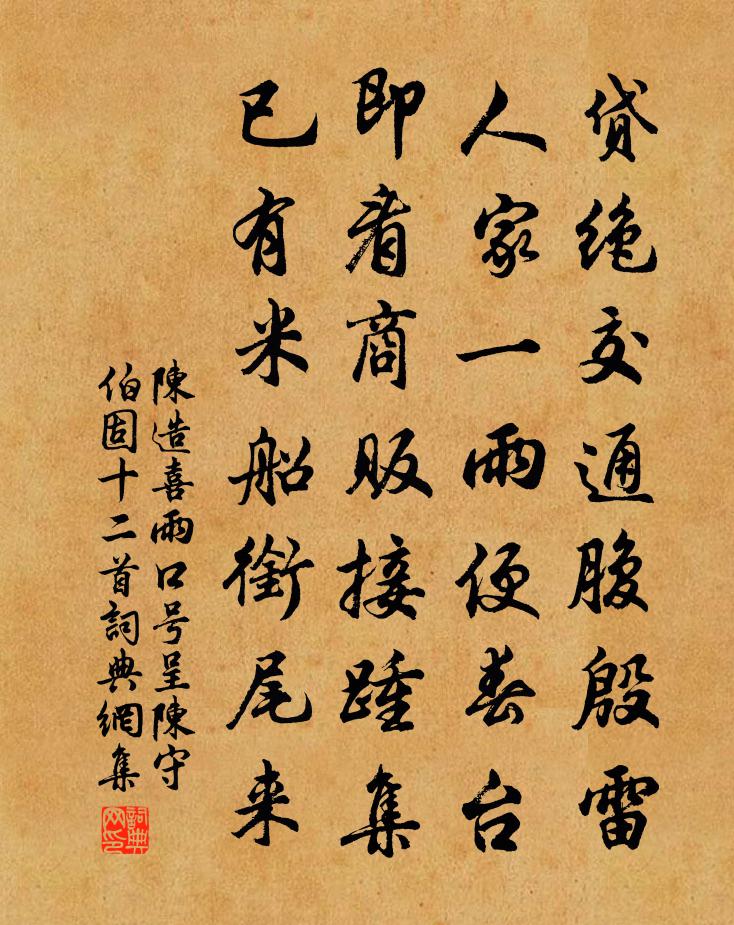 貸絶交通腹殷雷
人家一雨便春台
即看商販接踵集
已有米船銜尾来
陳造喜雨口号呈陳守
伯固十二首詞典網集
詞典
网印